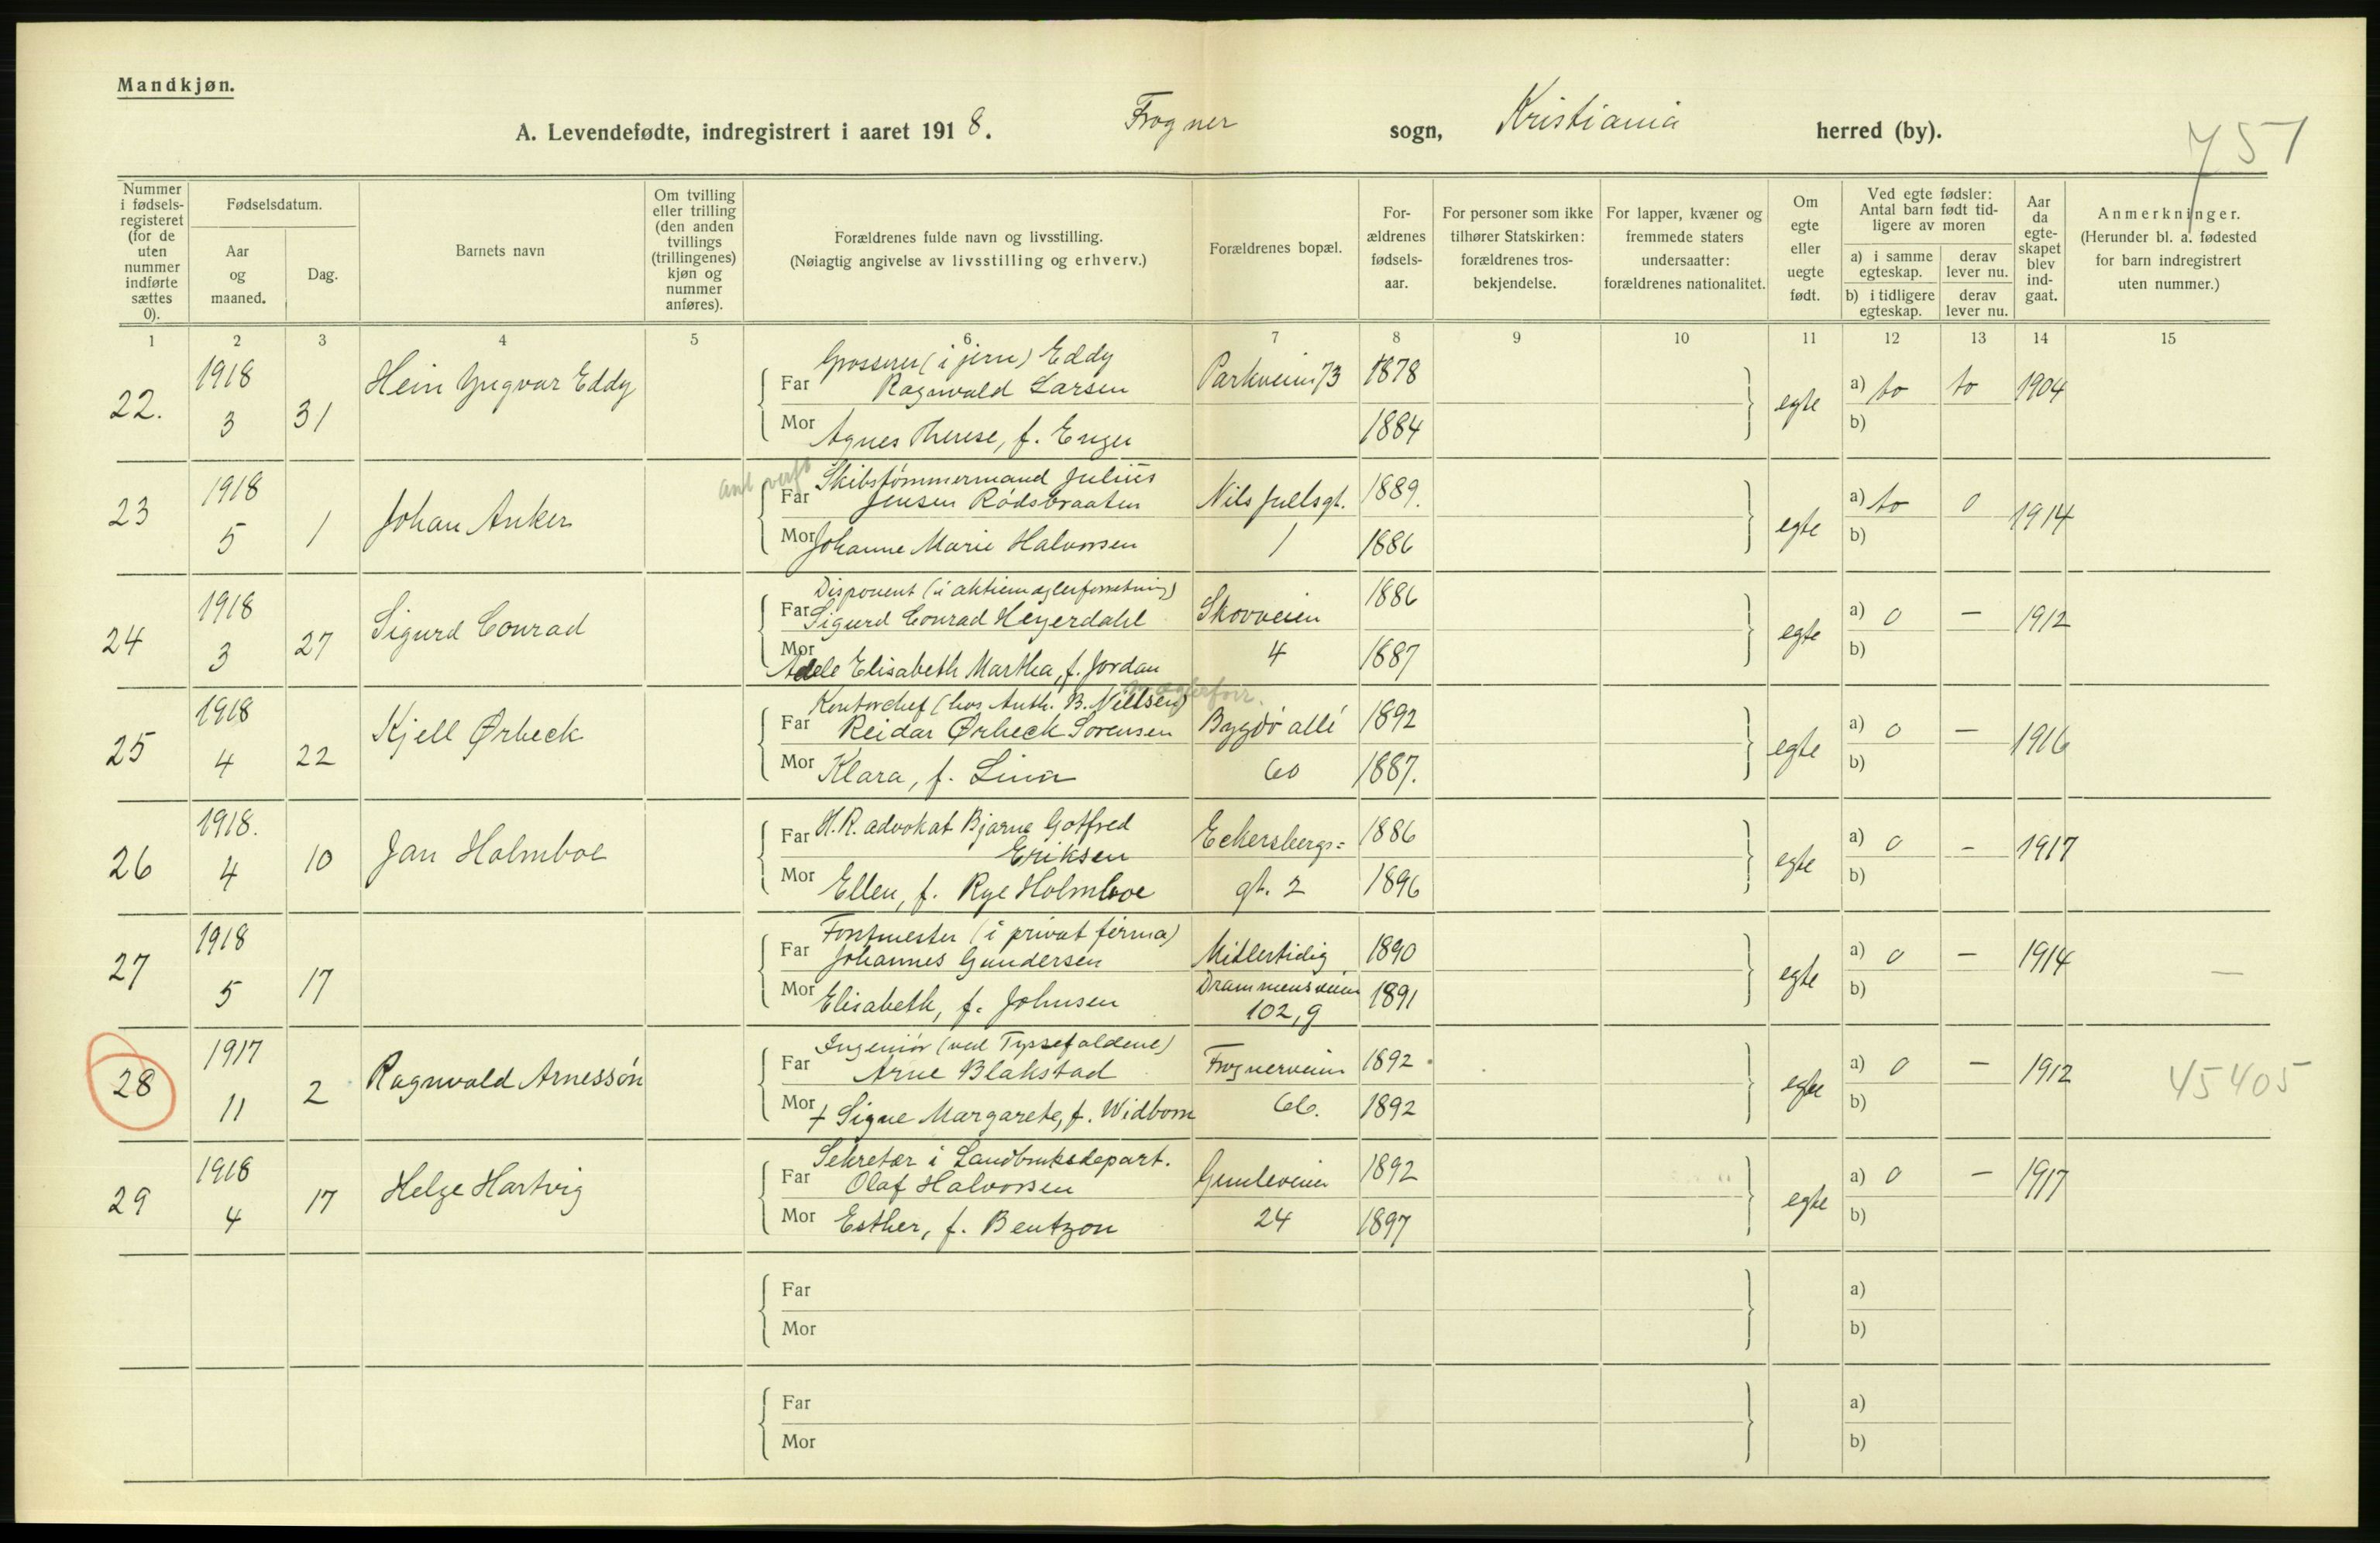 Mandkjøn.
A. Levendefødte, indregistrert i aaret 1918. Frogner sogn, Kristiania herred (by).
751
Nummer i fødsels-registeret (for de uten nummer indførte sættes 0).
Fødselsdatum.
Aar og maaned.
Dag.
Barnets navn
Om tvilling eller trilling (den anden tvillings (trillingenes) kjøn og nummer anføres).
Forældrenes fulde navn og livsstilling.
(Nøiagtig angivelse av livsstilling og erhverv.)
Forældrenes bopæl.
For-ældrenes fødsels-aar.
For personer som ikke tilhører Statskirken: forældrenes tros-bekjendelse.
For lapper, kvæner og fremmede staters undersaatter: forældrenes nationalitet.
Om egte eller uegte født.
Ved egte fødsler: Antal barn født tid-ligere av moren
a) i samme egteskap.
derav lever nu.
b) i tidligere egteskap.
derav lever nu.
Aar da egte-skapet blev ind-gaat.
Anmerkninger.
(Herunder bl. a. fødested for barn indregistrert uten nummer.)
1 2 3 4 5 6 7 8 9 10 11 12 13 14 15
22. 1918 3 31 Hein Yngvar Eddy
Grosserer (i jern) Eddy
Far Ragnvald Larsen Parkveien 73 1878
Mor Agnes Therese, f. Enger 1884
egte a) to to 1904
b)
23 1918 5 1 Johan Anker
Skibstømmermand Julius
Far Jensen Rødsbraaten Nils Juelsgt. 1889.
Mor Johanne Marie Halvorsen 1 1886
egte a) to 0 1914
b)
24 1918 3 27 Sigurd Conrad
Disponent (i aktiemæglerforretning)
Far Sigurd Conrad Heyerdahl Skovveien 1886
Mor Adele Elisabeth Martha, f. Jordan 4 1887
egte a) 0 — 1912
b)
25 1918 4 22 Kjell Ørbeck
Kontorchef (hos Anth. B. Nilsen)
Far Reidar Ørbeck Sørensen Bygdø allé 1892
Mor Klara, f. Linn 60 1887.
egte a) 0 — 1916
b)
26 1918. 4 10 Jan Holmboe
Far H.R. advokat Bjarne Gotfred
Eriksen Eckersbergs= 1886
Mor Ellen, f. Rye Holmboe gt. 2 1896
egte a) 0 - 1917
b)
27 1918 5 17
Forstmester (i privat firma)
Far Johannes Gundersen Midlertidig 1890
Mor Elisabeth, f. Johnsen Drammensveien 102, g 1891
egte a) 0 — 1914 —
b)
28 1917 11 2 Ragnvald Arnessøn
Ingeniør (ved Tyssefaldene)
Far Arne Blakstad Frognerveien 1892
Mor + Signe Margarete, f. Widbom 66. 1892
egte a) 0 — 1912 45405
b)
29 1918 4 17 Helge Hartvig
Sekretær i Landbruksdepart.
Far Olaf Halvorsen Gimleveien 1892
Mor Esther, f. Bentzon 24 1897
egte a) 0 — 1917
b)
Far a)
Mor b)
Far a)
Mor b)